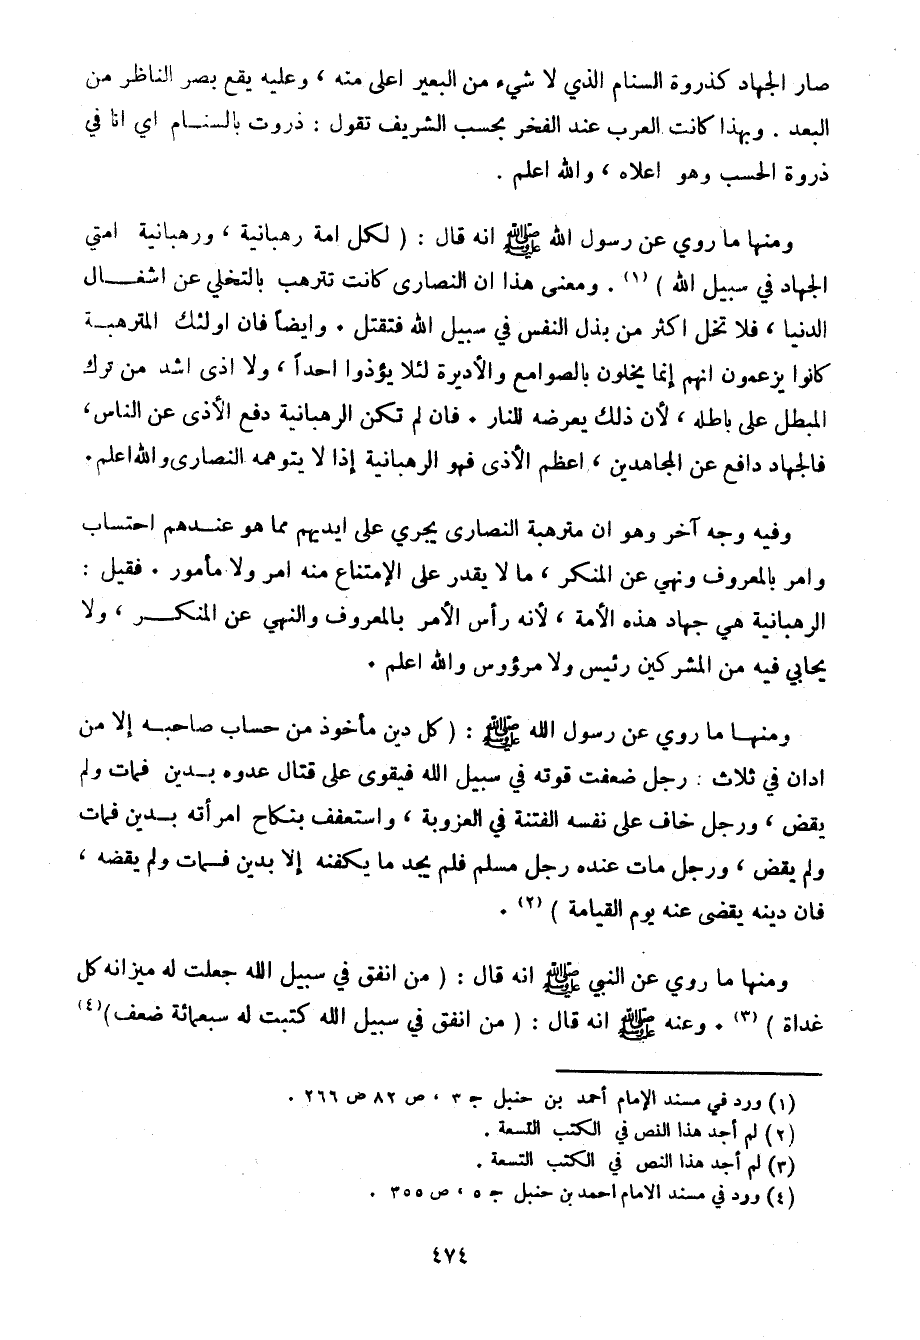 صار الجهاد كذروة السنام الذي لا شيء من البعير اعلى منه ، وعليه يقع بصر الناظر من
البعد . وبهذا كانت العرب عند الفخر بحسب الشريف تقول : ذروت بالسنام اي انا في
ذروة الحسب وهو اعلاه ، والله اعلم .
ومنها ما روي عن رسول الله ﷺ انه قال : ( لكل امة رهبانية ، ورهبانية امتي
الجهاد في سبيل الله ) (١) . ومعنى هذا ان النصارى كانت تترهب بالتخلي عن اشغال
الدنيا ، فلا تخل اكثر من بذل النفس في سبيل الله فتقتل . وايضاً فان اولئك المترهبة
كانوا يزعمون انهم إنما يخلون بالصوامع والأديرة لئلا يؤذوا احداً ، ولا اذى اشد من ترك
المبطل على باطله ، لأن ذلك يعرضه للنار . فان لم تكن الرهبانية دفع الأذى عن الناس ،
فالجهاد دافع عن المجاهدين ، اعظم الأذى فهو الرهبانية إذا لا يتوهمه النصارى والله اعلم .
وفيه وجه آخر وهو ان مترهبة النصارى يجري على ايديهم مما هو عندهم احتساب
وامر بالمعروف ونهي عن المنكر ، ما لا يقدر على الإمتناع منه امر ولا مأمور . فقيل :
الرهبانية هي جهاد هذه الأمة ، لأنه رأس الأمر بالمعروف والنهي عن المنكر ، ولا
يحابي فيه من المشركين رئيس ولا مرؤوس والله اعلم .
ومنها ما روي عن رسول الله ﷺ : ( كل دين مأخوذ من حساب صاحبه إلا من
ادان في ثلاث : رجل ضعفت قوته في سبيل الله فيقوى على قتال عدوه بدين فمات ولم
يقض ، ورجل خاف على نفسه الفتنة في العزوبة ، واستعفف بنكاح امرأته بدين فمات
ولم يقض ، ورجل مات عنده رجل مسلم فلم يجد ما يكفنه إلا بدين فمات ولم يقضه ،
فان دينه يقضى عنه يوم القيامة ) (٢) .
ومنها ما روي عن النبي ﷺ انه قال : ( من انفق في سبيل الله جعلت له ميزانه كل
غداة ) (٣) . وعنه ﷺ انه قال : ( من انفق في سبيل الله كتبت له سبعمائة ضعف ) (٤)
(١) ورد في مسند الإمام أحمد بن حنبل ج ٣ ، ص ٨٢ ض ٢٦٦ .
(٢) لم أجد هذا النص في الكتب التسعة .
(٣) لم أجد هذا النص في الكتب التسعة .
(٤) ورد في مسند الامام احمد بن حنبل ج ٥ ، ص ٣٥٥ .
٤٧٤